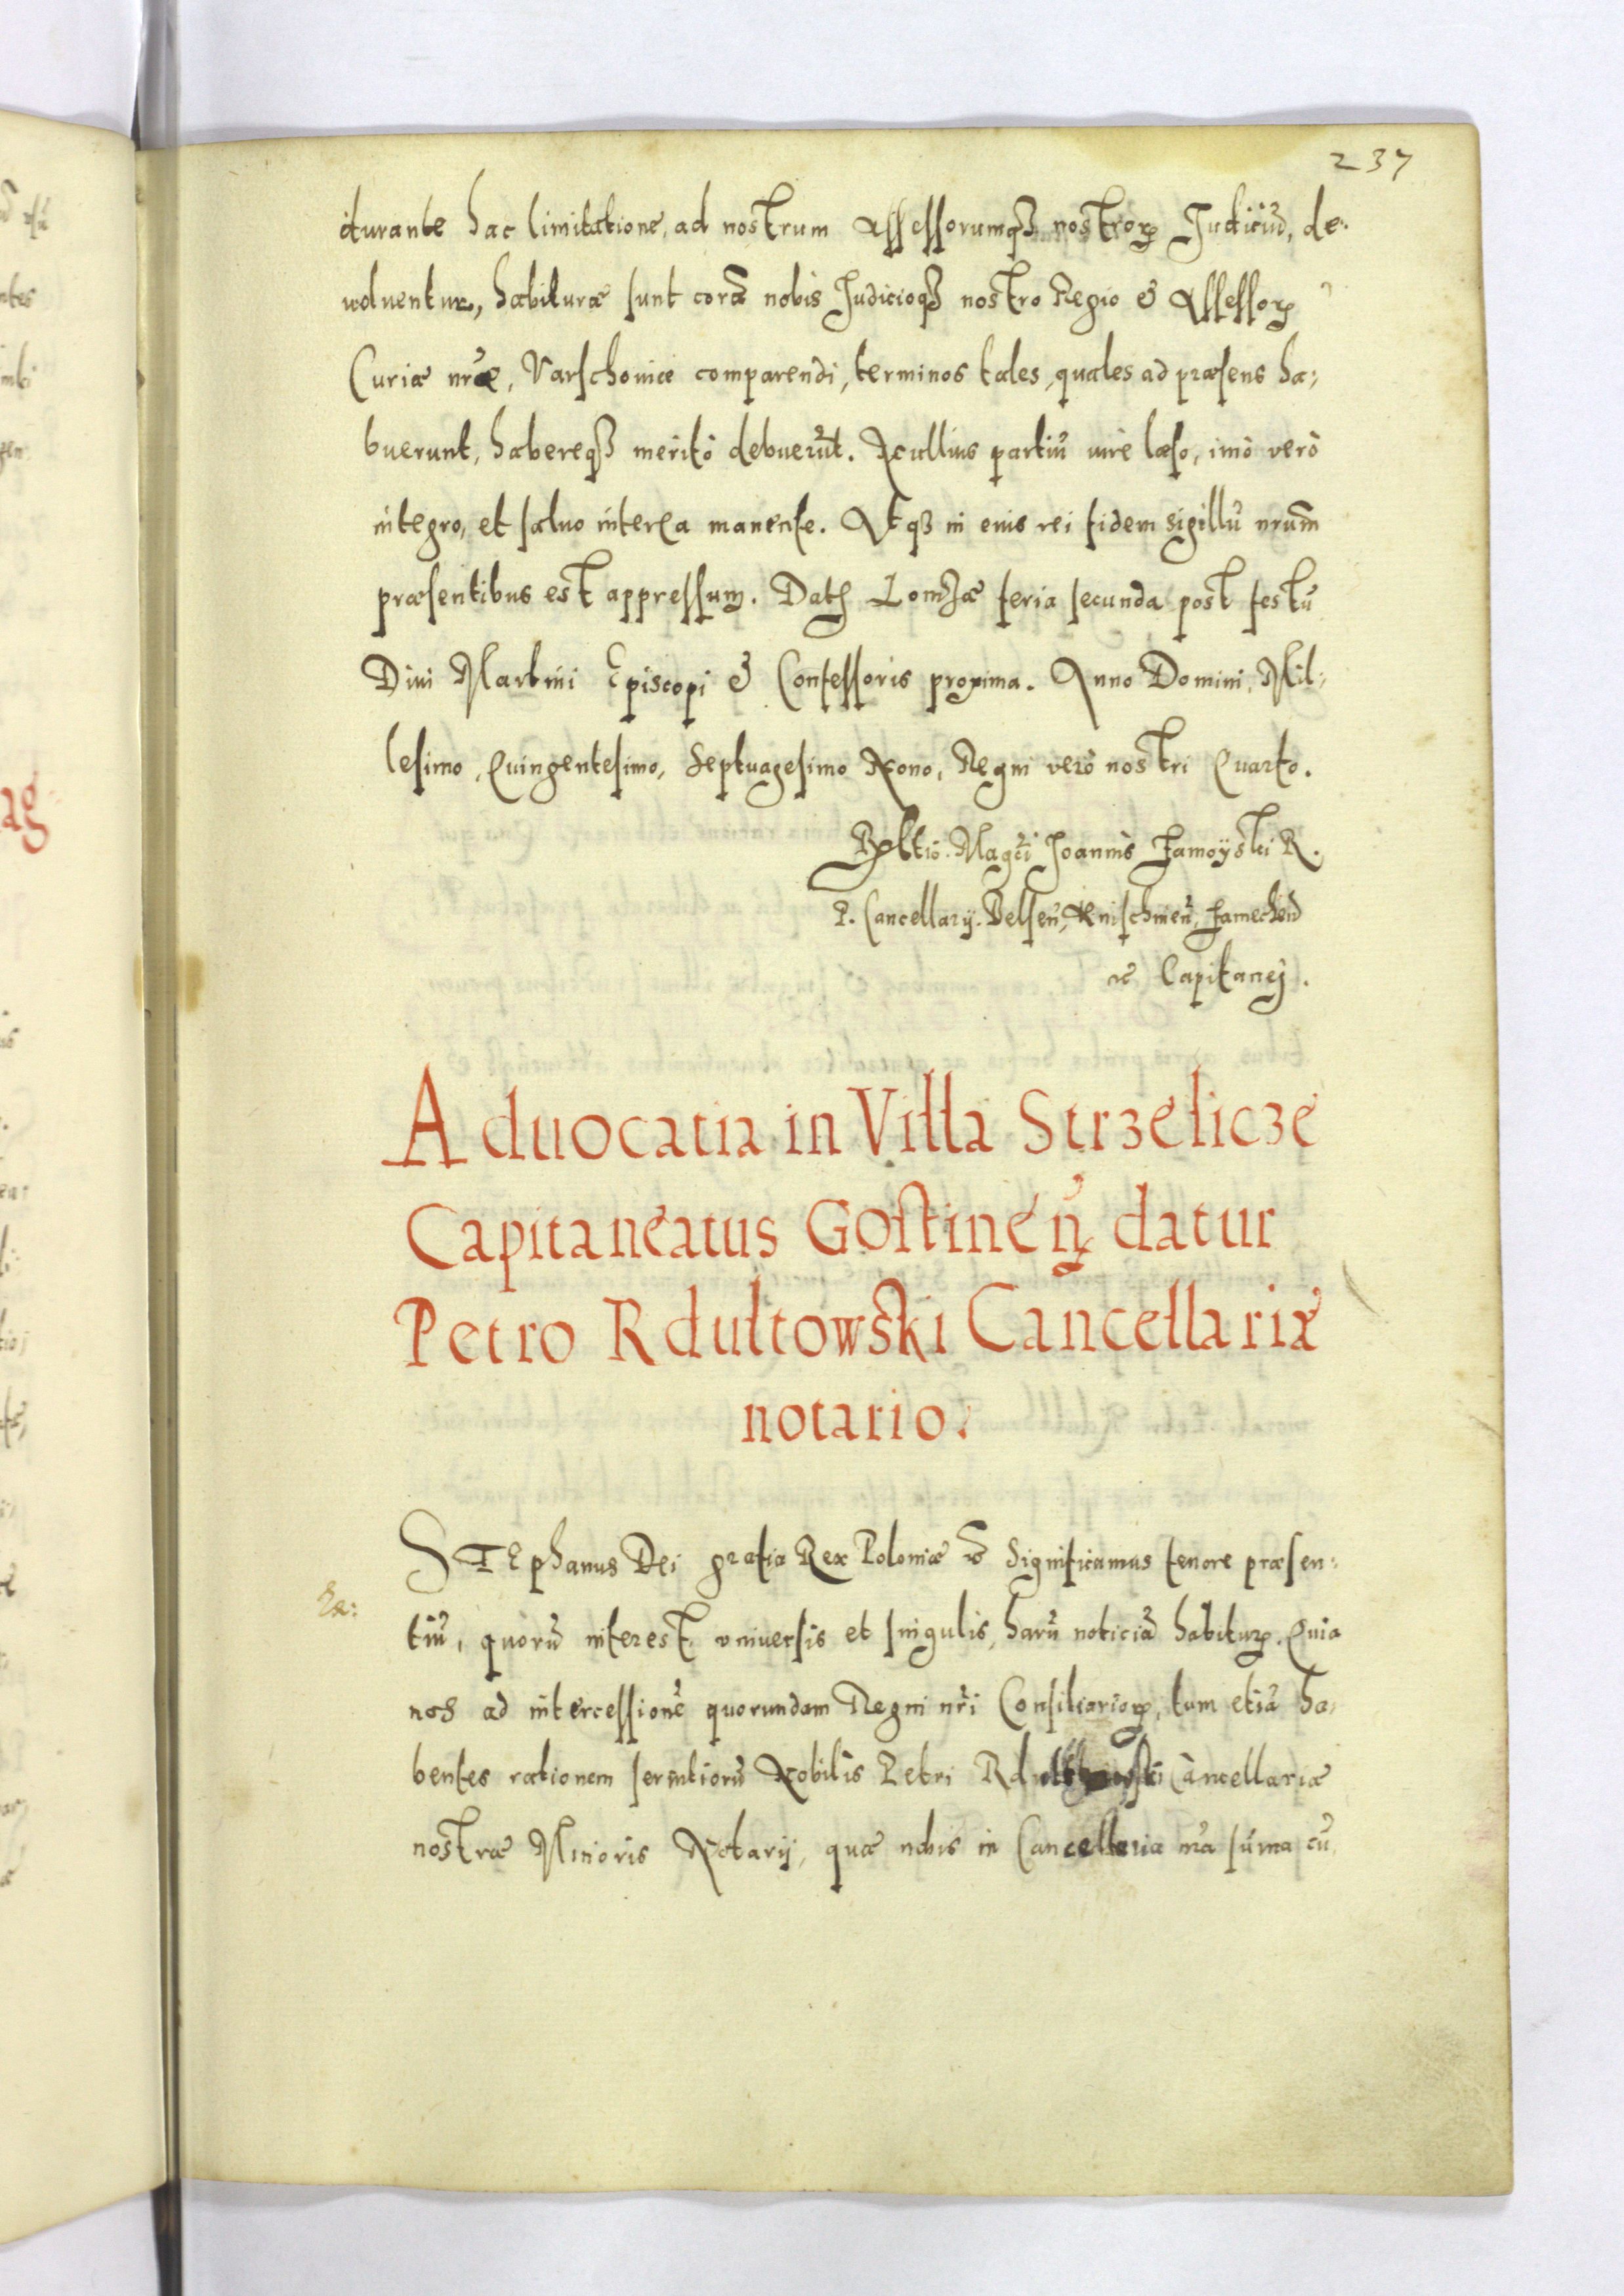 237
durante hac limitatione, ad nostrum Assessorumq3 nostror Judiciũ, de-
uoluentur, habituræ sunt corã nobis Judicioq3 nostro Regio & Assessor
Curiæ nr̃æ, Varschoviæ comparendi, terminos tales, quales ad præsens ha-
buerunt, habereq3 meritò debuerũt. Nullius partiũ iure læso, imò verò
integro, et saluo interea manente. Atq3 in eius rei fidem sigillũ nrũm
præsentibus est appressum. Dat Lomzæ feria secunda post festũ
Diui Martini Episcopi & Confessoris proxima. Anno Domini, Mil-
lesimo, Quingentesimo, Septuagesimo Nono, Regni verò nostri Quarto.
Rel̃tio. Magc̃i Joannis Zamoyski R.
P. Cancellarij. Belsen̄, Knischinen̄, Zamechen̄
æ Capitanej.
Aduocatia in Villa Strzelicze
Capitaneatus Gostinen̄ datur
Petro Rdultowski Cancellariæ
notario.
STEphanus Dei gratia Rex Poloniæ & Significamus tenore præsen-
tiũ, quorũ interest, vniuersis et singulis, harũ noticiã habitur. Quia
nos ad intercessionẽ quorundam Regni nr̃i Consiliarior, tum etiã ha-
bentes rationem seruitiorũ Nobilis Petri Rdultowski Cancellariæ
nostræ Minoris Notarij, quæ nobis in Cancellaria nr̃a sũma cũ